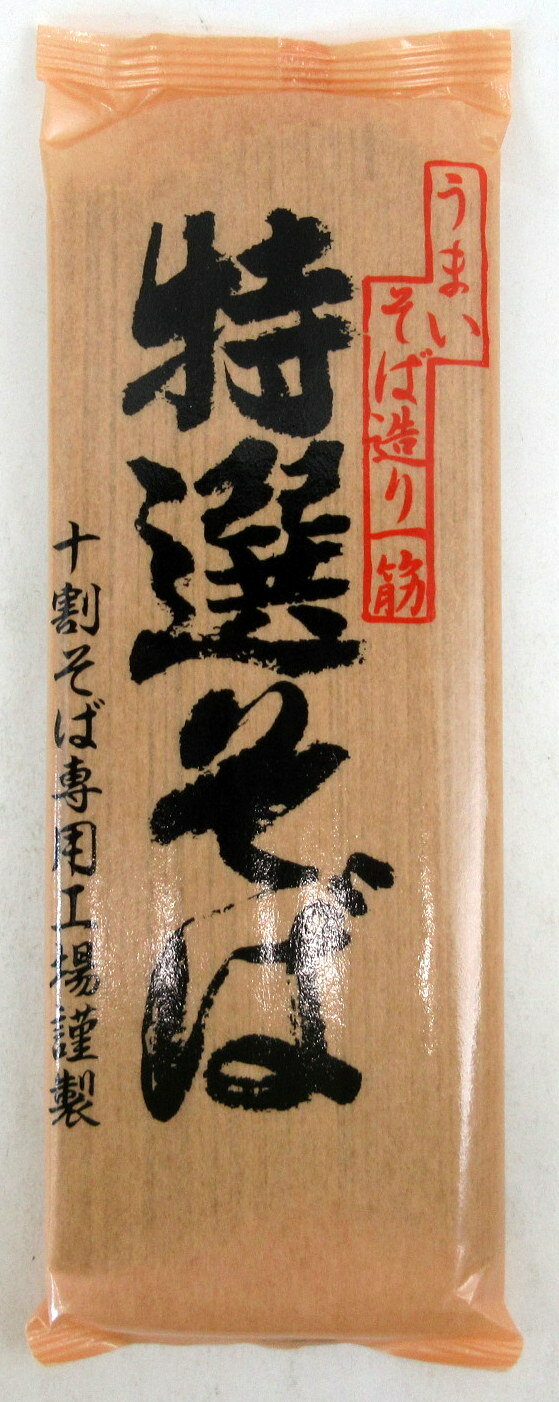 うまい
そば造り一筋
特選そば
十割そば専用工場謹製